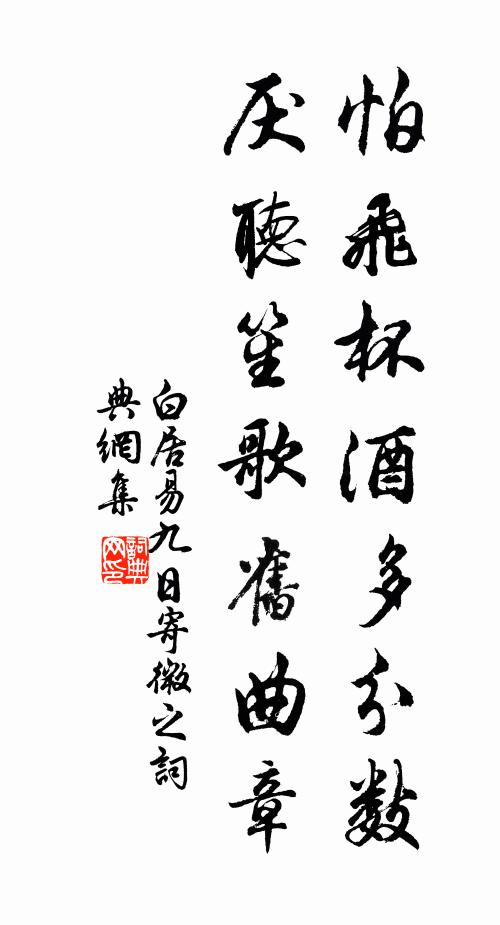 怕飛杯酒多分數
厌聽笙歌舊曲章
白居易九日寄微之詞
典網集
詞典
网印